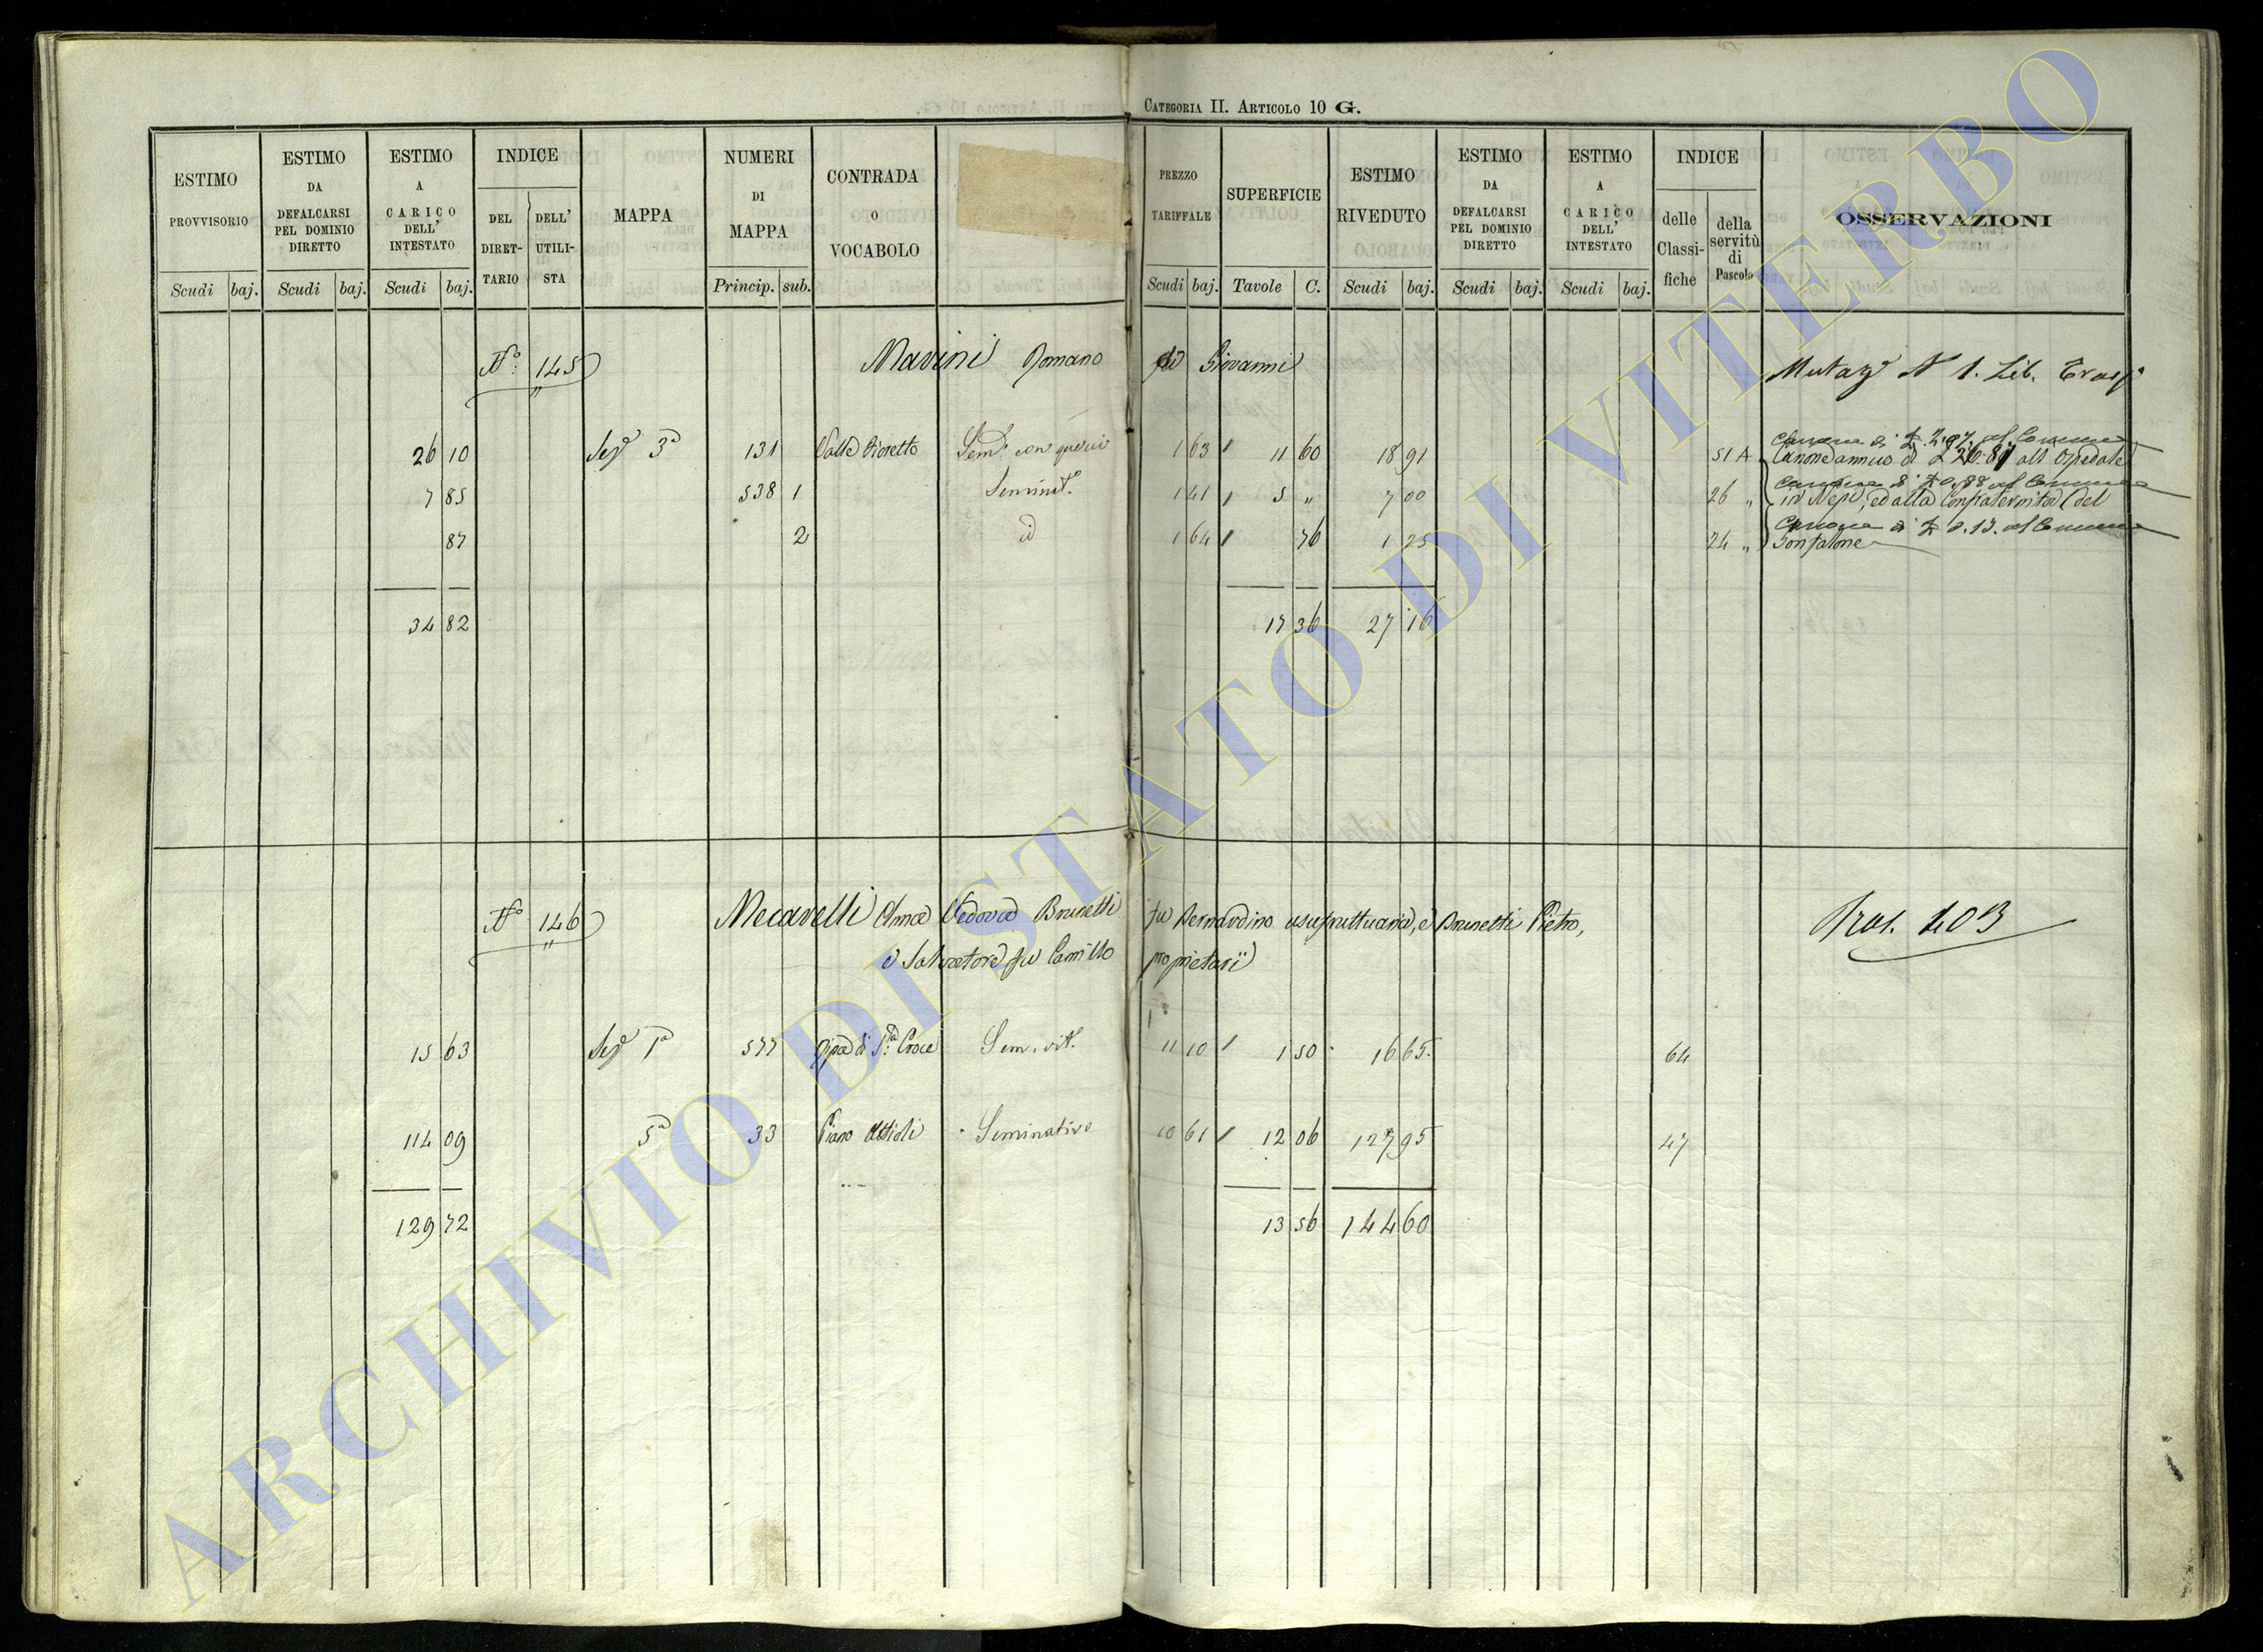 CATEGORIA II. ARTICOLO 10 G.
ESTIMO PROVVISORIO
Scudi baj.
ESTIMO DA DEFALCARSI PEL DOMINIO DIRETTO
Scudi baj.
ESTIMO A CARICO DELL' INTESTATO
Scudi baj.
INDICE
DEL DIRET-TARIO
DELL' UTILI-STA
MAPPA
NUMERI DI MAPPA
Princip. sub.
CONTRADA O VOCABOLO
PREZZO TARIFFALE
Scudi baj.
SUPERFICIE
Tavole C.
ESTIMO RIVEDUTO
Scudi baj.
ESTIMO DA DEFALCARSI PEL DOMINIO DIRETTO
Scudi baj.
ESTIMO A CARICO DELL' INTESTATO
Scudi baj.
INDICE
delle Classi-fiche
della servitù di Pascolo
OSSERVAZIONI
N.° 145 Romano fu Giovanni N 1. Lib.
26 10 Sez.e 3a 131 Sem. con querci 1 63 11 60 18 91 51 A Canone annuo di 26.87 all Ospedale
7 85 538 1 Seminat. 1 41 5 „ 7 00 26 „ in Nepi, ed alla Confraternita del
87 2 id 1 64 76 1 25 24 „ Gonfalone
34 82 17 36 27 16
N.° 146 Mecarelli Anna Vedova Brunetti fu Bernardino usufruttuaria, e Brunetti Pietro,
e Salvatore fu Camillo proprietarii
15 63 Sez.e 1a 577 Ripa di S.ta Croce Sem. vit. 11 10 1 50 16 65 64
114 09 5a 33 Piano Seminativo 10 61 12 06 127 95 47
129 72 13 56 144 60
ARCHIVIO DI STATO DI VITERBO